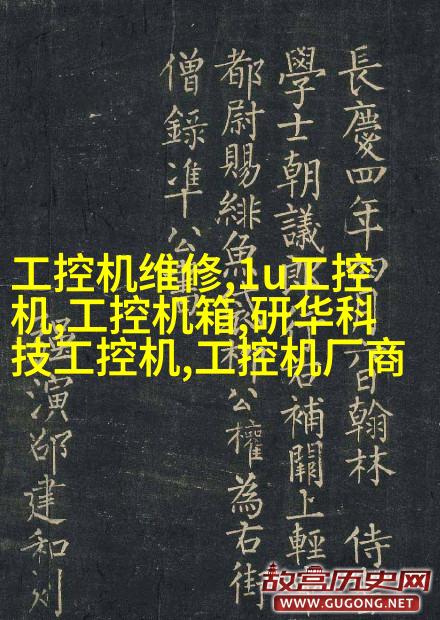 長慶四年 日翰林 侍
學士朝議 補闕上輕
都尉賜緋魚 公權為右街
僧錄准公
演邵建和刻
工控机维修,1u工控
机,工控机箱,研华科
技工控机,工控机厂商
故宫历史网
WWW.GUGONG.NET